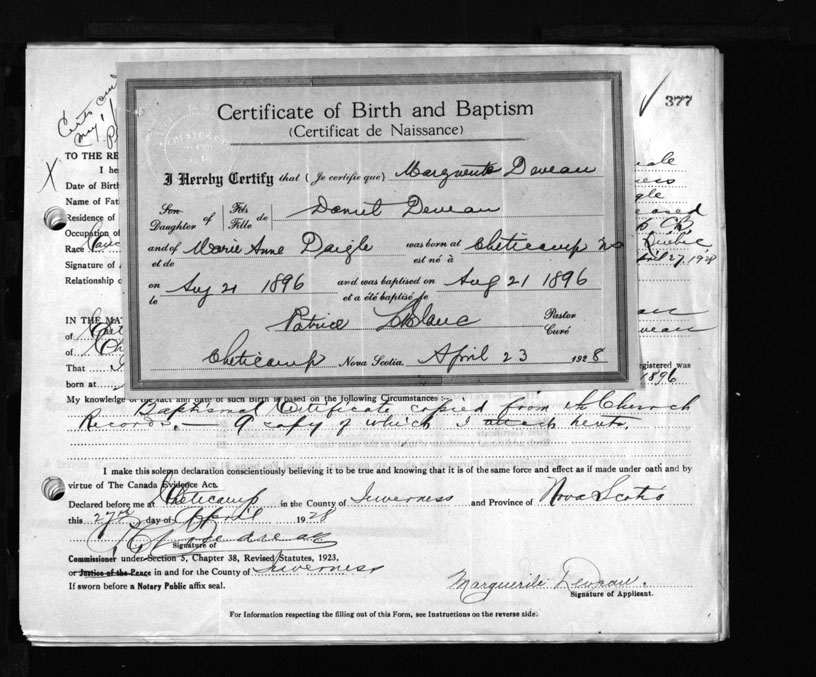 377
Certs and
my
Certificate of Birth and Baptism
(Certificat de Naissance)
I Hereby Certify that (Je certifie que) Marguerite Deveau
Son Daughter of Fils Fille de Daniel Deveau
and of et de Marie Anne Daigle was born at est né à Cheticamp NS
on le Aug 21 1896 and was baptised on et a été baptisé le Aug 21 1896
Patrice LeBlanc Pastor Curé
Cheticamp Nova Scotia, April 23 1928
TO THE RE
I he
Date of Birth
Name of Fat
Residence of
Occupation of
Race
Signature of
Relationship
April 27, 1928
Quebec
IN THE MA
of
of
That
gistered was
born at 1896
My knowledge of the fact and date of such Birth is based on the following Circumstances :—
Baptismal Certificate copied from the Church
Records. — A copy of which I attach hereto.
I make this solemn declaration conscientiously believing it to be true and knowing that it is of the same force and effect as if made under oath and by
virtue of The Canada Evidence Act.
Declared before me at Cheticamp in the County of Inverness and Province of Nova Scotia
this 27th day of April 1928
Signature of
Commissioner under Section 3, Chapter 38, Revised Statutes, 1923,
or Justice of the Peace in and for the County of Inverness
If sworn before a Notary Public affix seal.
Marguerite Deveau.
Signature of Applicant.
For Information respecting the filling out of this Form, see Instructions on the reverse side.